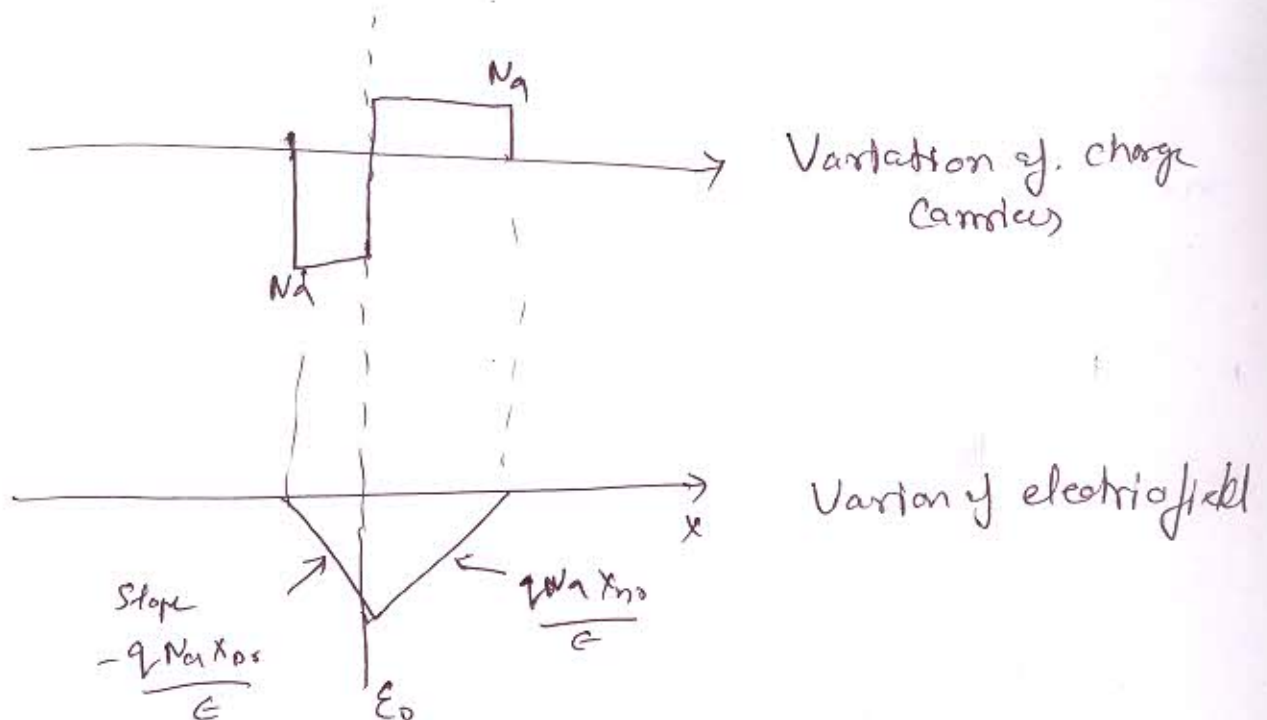 Na
Variation of. charge
Carriers
Nd
x
Varion of electric field
Slope
- q Na x
ϵ
q Na x
ϵ
ε₀